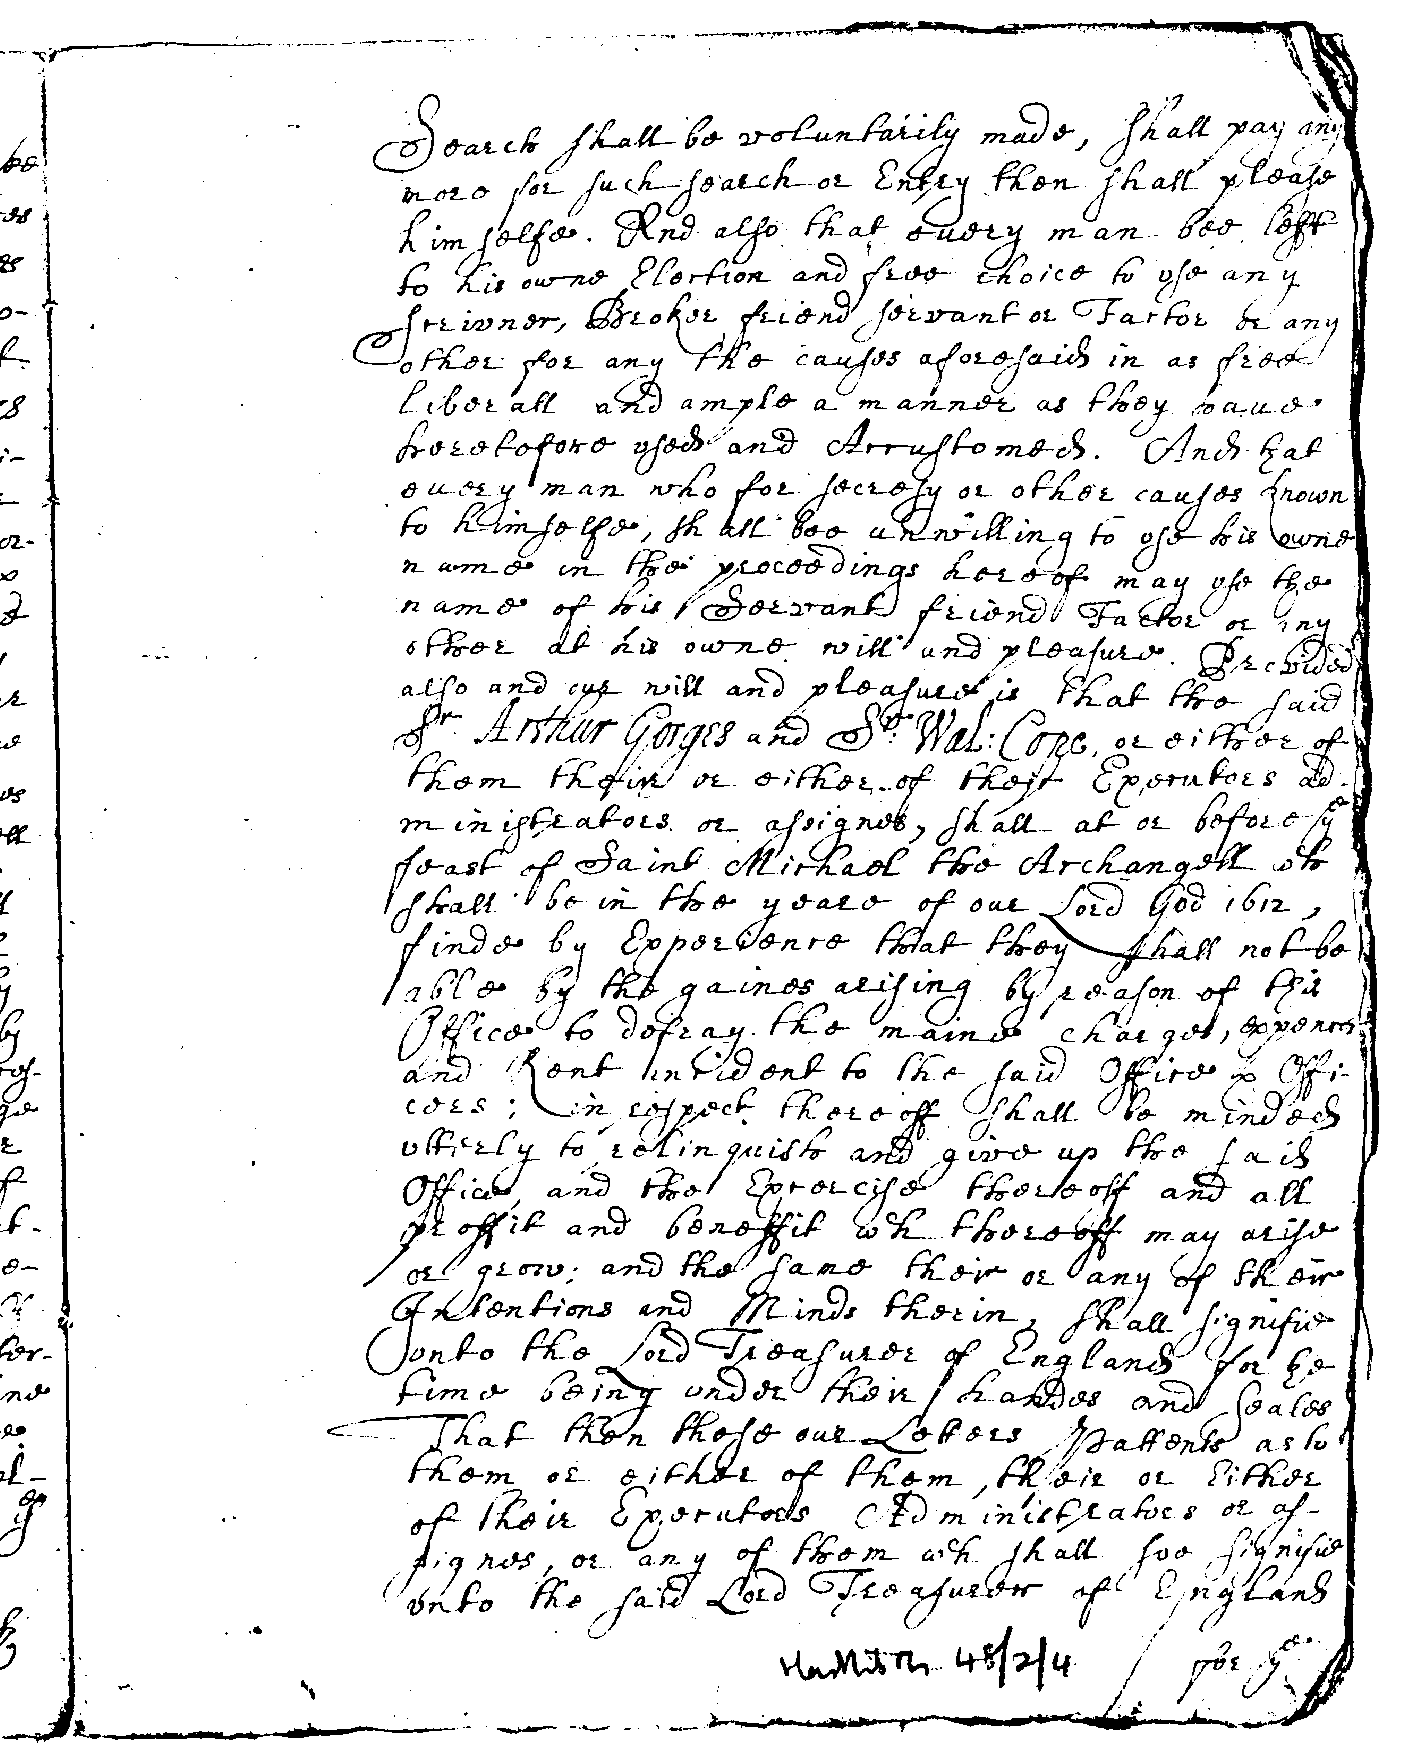 Search shall be voluntarily made, shall pay any
more for such search or Entry then shall please
himselfe. And also that every man bee left
to his owne Election and free choice to vse any
scrivner, Broker friend servant or Factor or any
other for any the causes aforesaid in as free
liberall and ample a manner as they haue
heretofore vsed and Accustomed. And that
euery man who for secresy or other causes known
to himselfe, shall bee unwilling to vse his owne
name in the proceedings hereof may vse the
name of his Servant friend Factor or any
other at his owne will and pleasure. Provided
also and our will and pleasure is that the said
Sr Arthur Gorges and Sr: Wal: Cope, or either of
them their or either of their Executors ad-
ministrators or assignes, shall at or before ye
feast of Saint Michael the Archangell wch
shall be in the yeare of our Lord God 1612,
finde by Experience that they shall not be
able by the gaines arising by reason of this
Office to defray the maine charges, expences
and Rent incident to the said Office & Offi-
cers; in respect thereoff shall be minded
vtterly to relinquish and give up the said
Office, and the Exercise thereoff and all
proffit and beneffit wch thereoff may arise
or grow; and the same their or any of their
Intentions and Minds therin, shall signifie
vnto the Lord Treasurer of England for the
time being vnder their handes and seales
That then these our Letters Pattents as to
them or either of them, their or Either
of their Executors Administrators or as-
signes, or any of them wch shall soe signifie
vnto the said Lord Treasurer of England
for ye
48/2/4